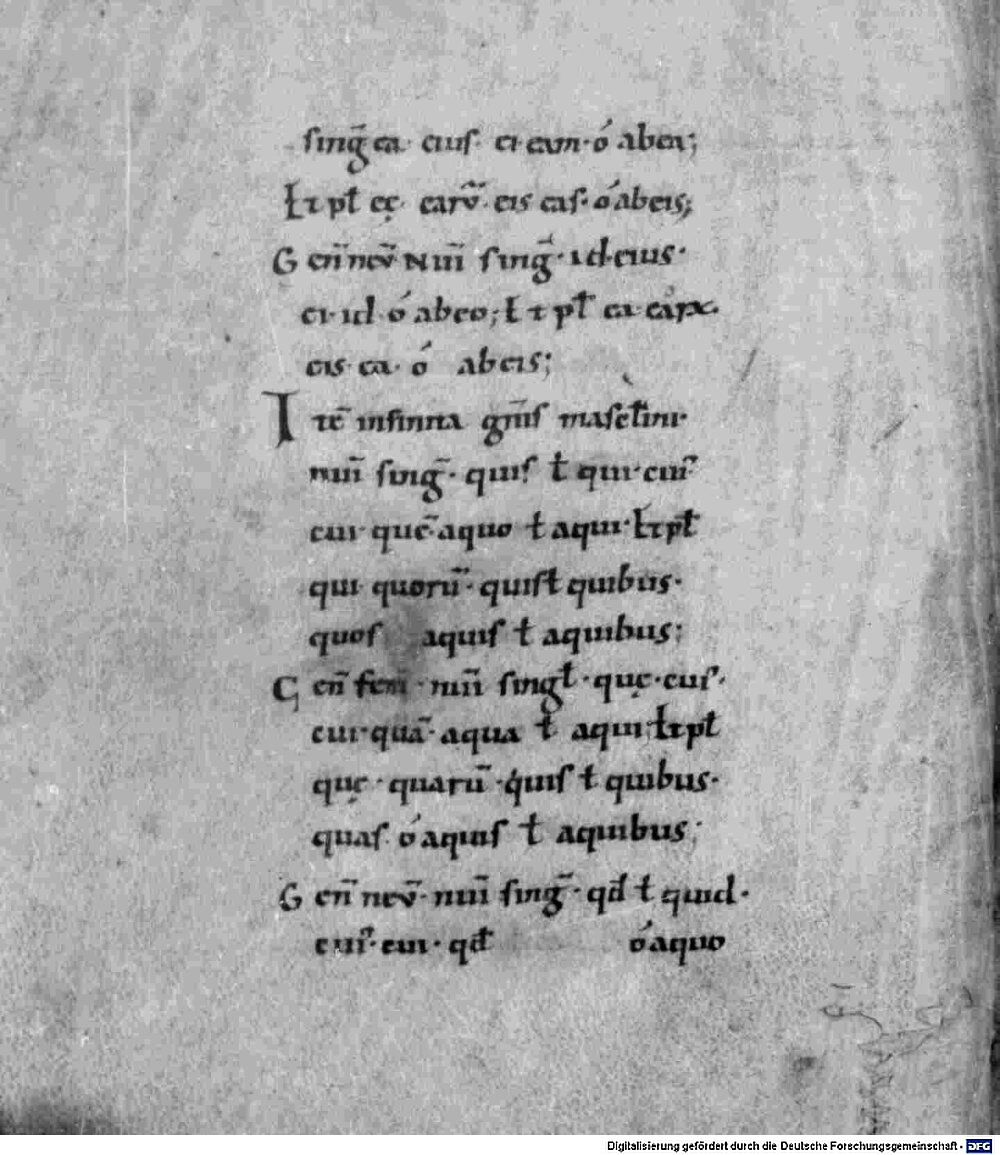 sing̅ ea· eius· ei· eam· ó abea;
Et pł eę· earū· eis eas· ó abeis;
Gen̅ neū Num̅ sing̅· id· eius·
ei· id· ó abeo; Et pł ea· eaꝝ·
eis· ea· ó abeis;
Ite̅ infinita gn̅is mascłini·
num̅ sing̅· quis ł qui· cui᾽
cui· que̅· aquo ł aqui· Et pł
qui· quoru̅· quis ł quibus·
quos aquis ł aquibus;
Gen̅ fem̅· num̅ singł· quę· cui᾽·
cui· qua̅· aqua ł aqui· Et pł
quę· quaru̅· quis ł quibus·
quas· ó aquis ł aquibus;
Gen̅ neu̅· num̅ sing̅· qd̅ ł quid·
cui᾽· cui· qd̅ ó aquo
Digitalisierung gefördert durch die Deutsche Forschungsgemeinschaft - DFG